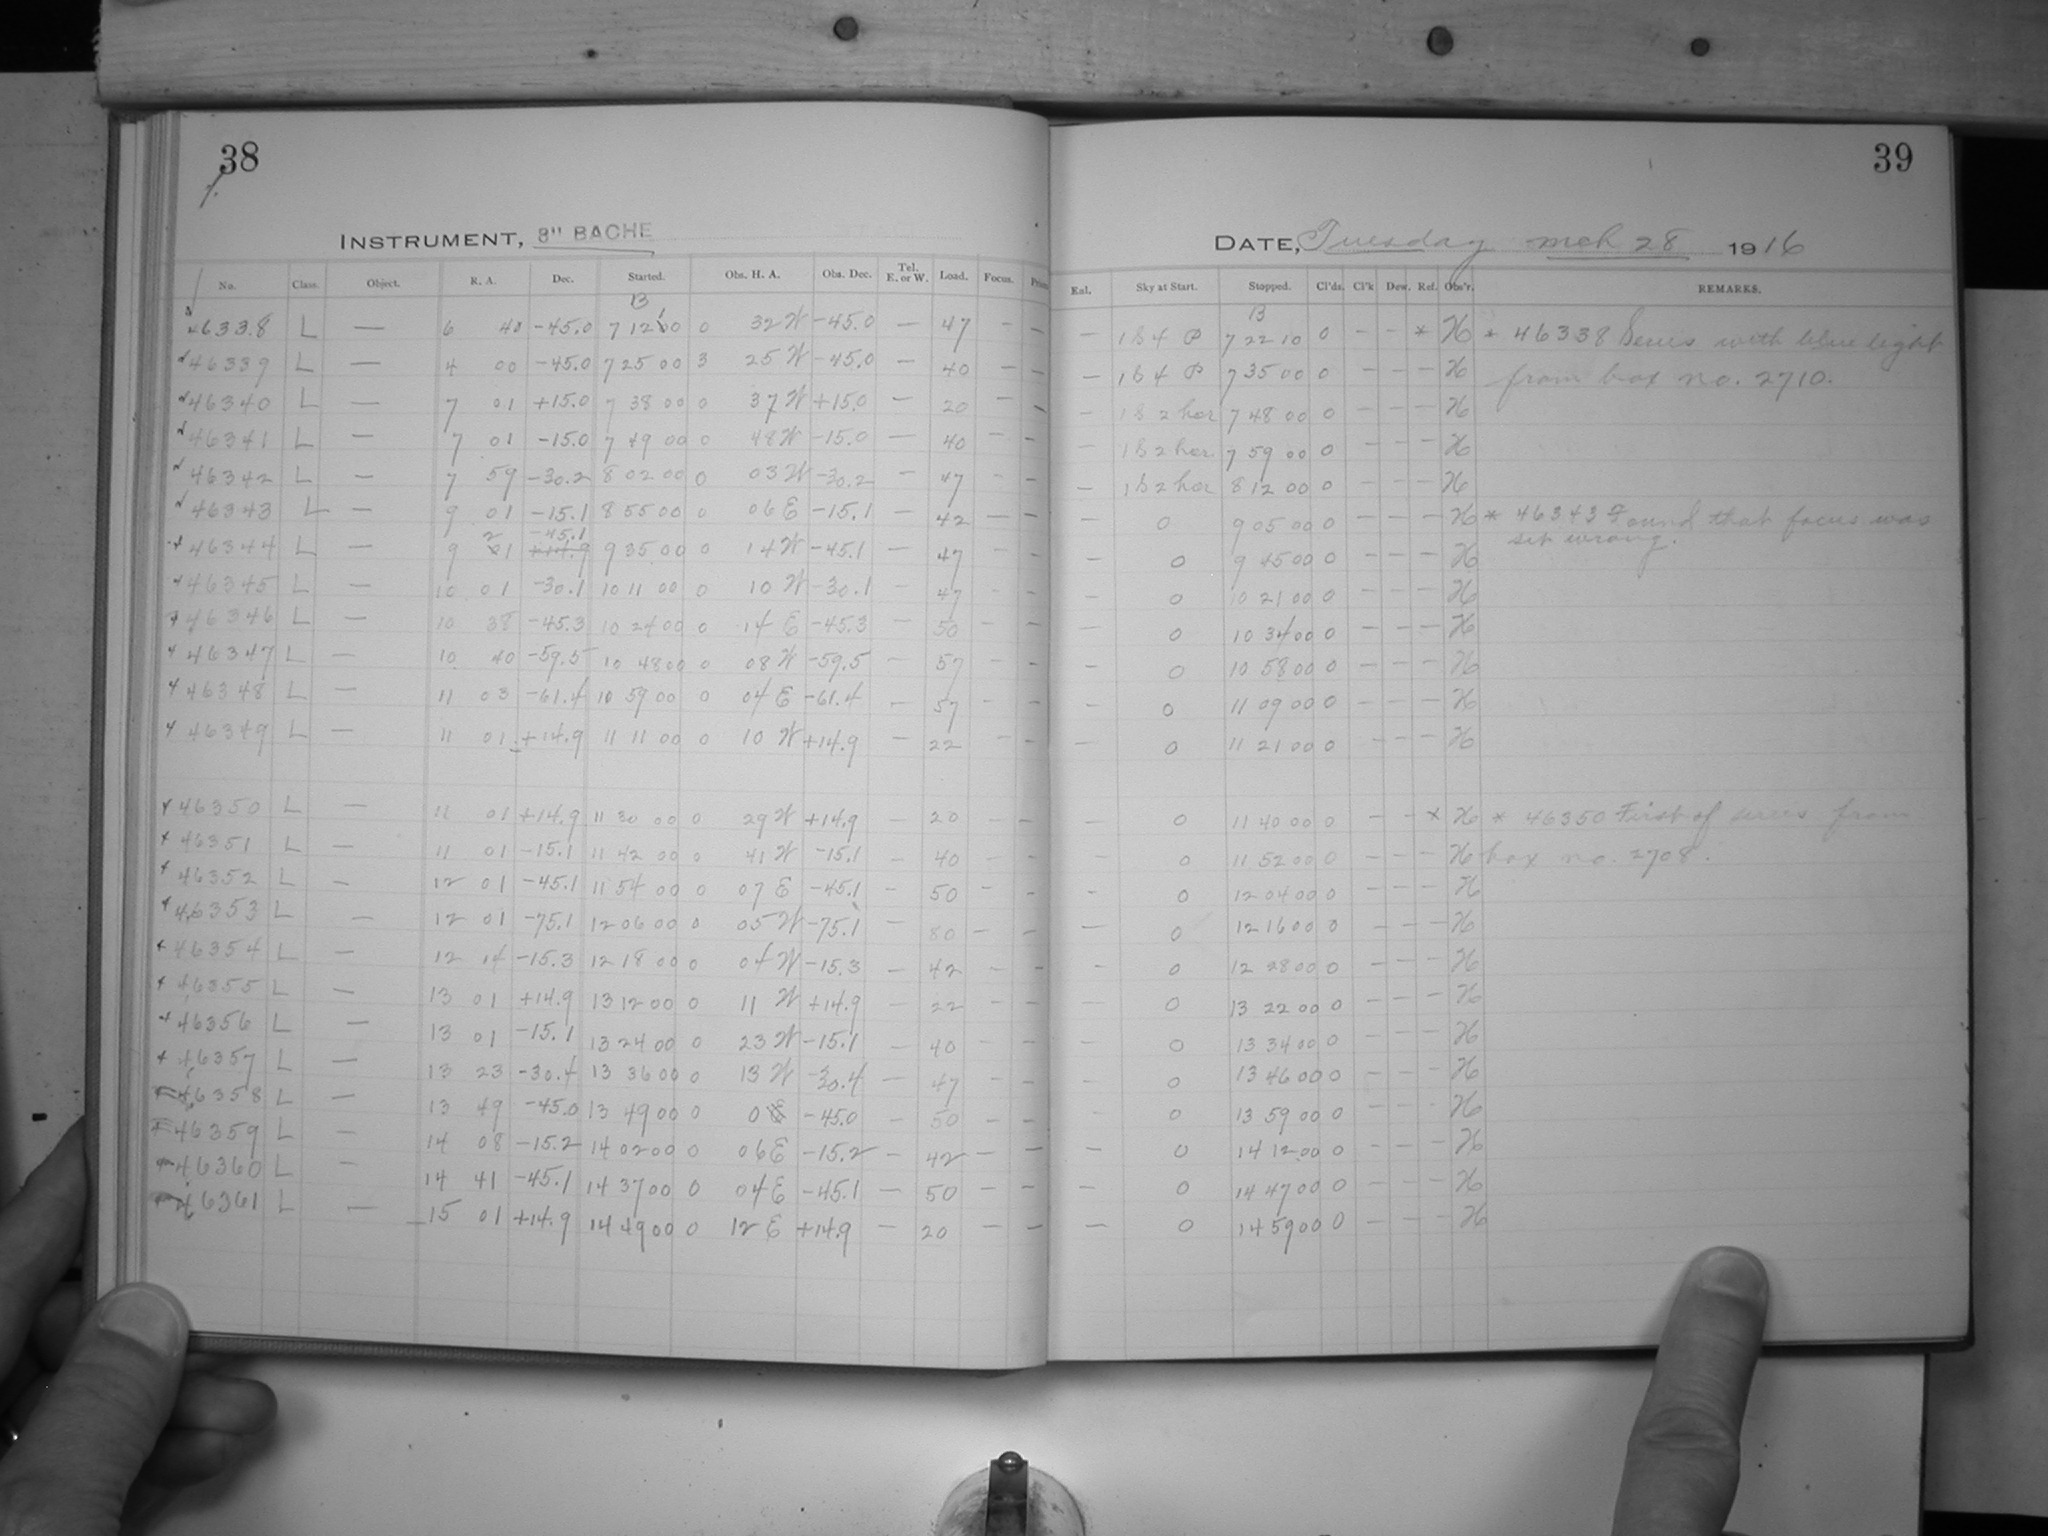 38
39
INSTRUMENT, 8" BACHE
DATE, Tuesday mch 28 1916
No. Class. Object. R. A. Dec. Started. Obs. H. A. Obs. Dec. Tel. E. or W. Load. Focus. Exl. Sky at Start. Stopped. Cl'ds. Cl'k Dew. Ref. Obs'r. REMARKS.
46338 L — 6 -45.0 7 12 0 32 W -45.0 — 47 - — — 7 22 10 0 - - * H * 46338 Series with blue light
46339 L — 4 00 -45.0 7 25 00 3 25 W -45.0 — 40 - — — 7 35 00 0 - - - H from box no. 2710.
46340 L — 7 01 +15.0 7 38 00 0 37 W +15.0 — 20 - — — 7 48 00 0 - - - H
46341 L — 7 01 -15.0 7 49 00 0 48 W -15.0 — 40 - — 7 59 00 0 - - - H
46342 L — 7 59 -30.2 8 02 00 0 03 W -30.2 — 47 - — — 8 12 00 0 - - - H
46343 L — 9 01 -15.1 8 55 00 0 06 E -15.1 — 42 - — 0 9 05 00 0 - - - H * 46343 Found that focus was
set wrong.
46344 L — 9 21 -45.1 9 35 00 0 14 W -45.1 — 47 - — — 0 9 45 00 0 - - - H
46345 L — 10 01 -30.1 10 11 00 0 10 W -30.1 — 47 - — — 0 10 21 00 0 - - - H
46346 L — 10 38 -45.3 10 24 00 0 14 E -45.3 — 50 - — — 0 10 34 00 0 - - - H
46347 L — 10 40 -59.5 10 48 00 0 08 W -59.5 — 57 - — — 0 10 58 00 0 - - - H
46348 L — 11 03 -61.4 10 59 00 0 04 E -61.4 — 57 - — — 0 11 09 00 0 - - - H
46349 L — 11 01 +14.9 11 11 00 0 10 W +14.9 — 22 - — — 0 11 21 00 0 - - - H
46350 L — 11 01 +14.9 11 30 00 0 29 W +14.9 — 20 - — — 0 11 40 00 0 - - * H * 46350 First of series from
46351 L — 11 01 -15.1 11 42 00 0 41 W -15.1 — 40 - — — 0 11 52 00 0 - - - H box no. 2708.
46352 L — 12 01 -45.1 11 54 00 0 07 E -45.1 — 50 - — — 0 12 04 00 0 - - - H
46353 L — 12 01 -75.1 12 06 00 0 05 W -75.1 — 80 - — — 0 12 16 00 0 - - - H
46354 L — 12 14 -15.3 12 18 00 0 04 W -15.3 — 42 - — — 0 12 28 00 0 - - - H
46355 L — 13 01 +14.9 13 12 00 0 11 W +14.9 — 22 - — — 0 13 22 00 0 - - - H
46356 L — 13 01 -15.1 13 24 00 0 23 W -15.1 — 40 - — — 0 13 34 00 0 - - - H
46357 L — 13 23 -30.4 13 36 00 0 13 W -30.4 — 47 - — — 0 13 46 00 0 - - - H
46358 L — 13 49 -45.0 13 49 00 0 0 -45.0 — 50 - — — 0 13 59 00 0 - - - H
46359 L — 14 08 -15.2 14 02 00 0 06 E -15.2 — 42 - — — 0 14 12 00 0 - - - H
46360 L — 14 41 -45.1 14 37 00 0 04 E -45.1 — 50 - — — 0 14 47 00 0 - - - H
46361 L — 15 01 +14.9 14 49 00 0 12 E +14.9 — 20 - — — 0 14 59 00 0 - - - H